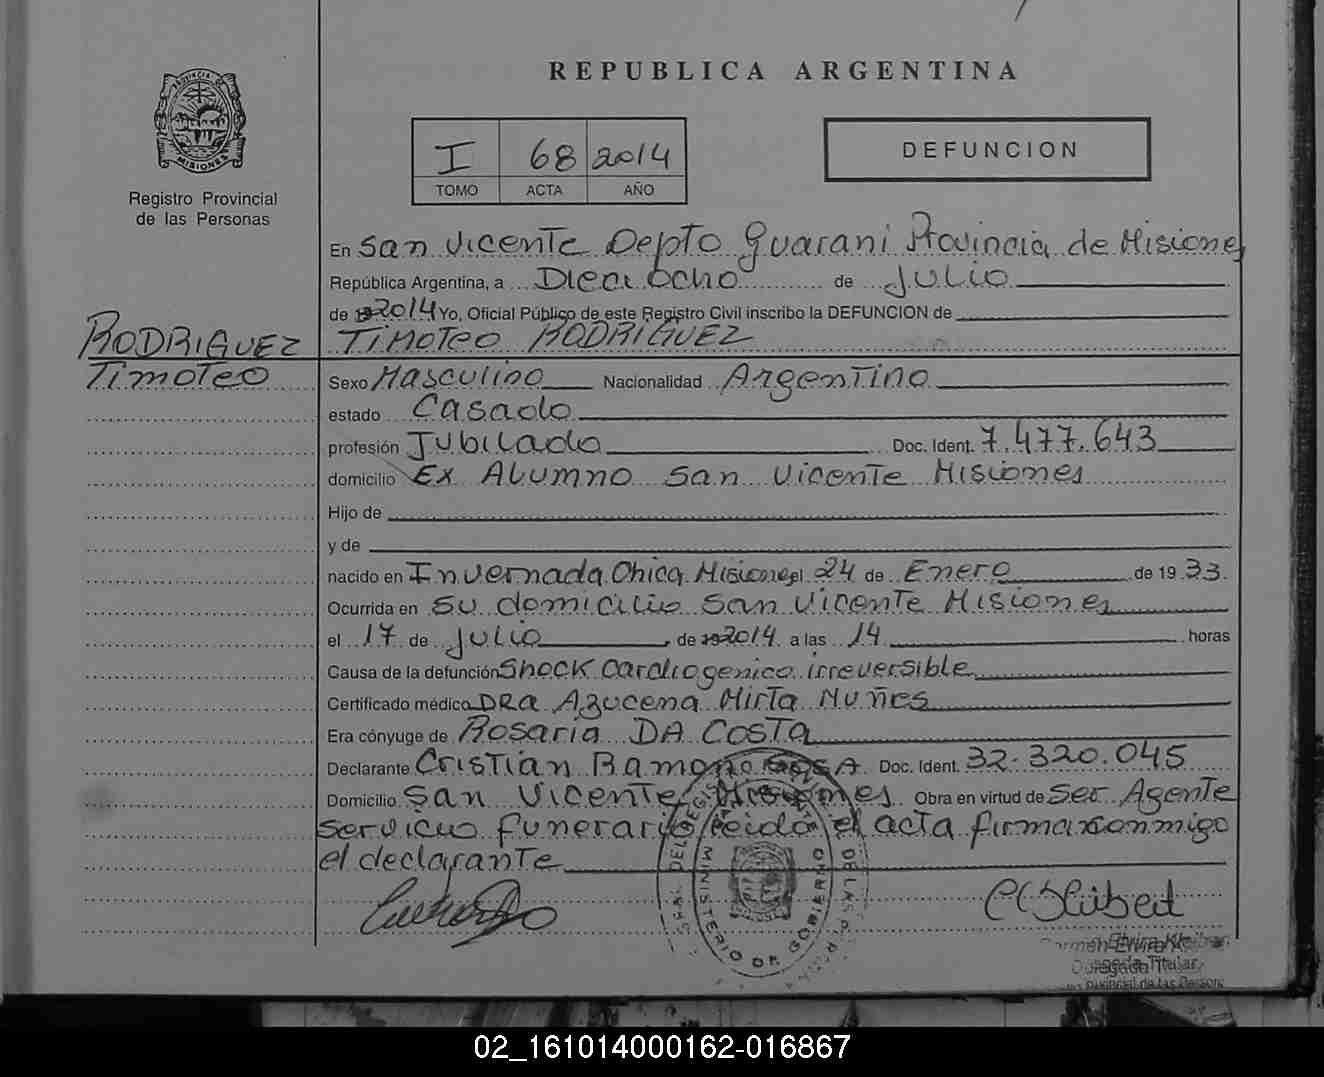 REPUBLICA ARGENTINA
PROVINCIA DE MISIONES
Registro Provincial
de las Personas
I 68 2014
TOMO ACTA AÑO
DEFUNCION
En San Vicente Depto Guarani Provincia de Misiones
República Argentina, a Dieciocho de Julio
de 2014 Yo, Oficial Público de este Registro Civil inscribo la DEFUNCION de
RODRIGUEZ
Timoteo
Timoteo RODRIGUEZ
Sexo Masculino Nacionalidad Argentino
estado Casado
profesión Jubilado Doc. Ident. 7.477.643
domicilio Ex Alumno San Vicente Misiones
Hijo de
y de
nacido en Invernada Chica Misiones el 24 de Enero de 1933
Ocurrida en su domicilio San Vicente Misiones
el 17 de Julio de 2014 a las 14 horas
Causa de la defunción Shock Cardiogenico irreversible
Certificado médico DRA Azucena Mirta Nuñes
Era cónyuge de Rosaria DA COSTA
Declarante Cristian Ramon SOSA Doc. Ident. 32.320.045
Domicilio San Vicente Misiones Obra en virtud de Ser Agente
servicio funerario leido el acta firma conmigo
el declarante
MINISTERIO DE GOBIERNO
Delegada Titular
02_161014000162-016867